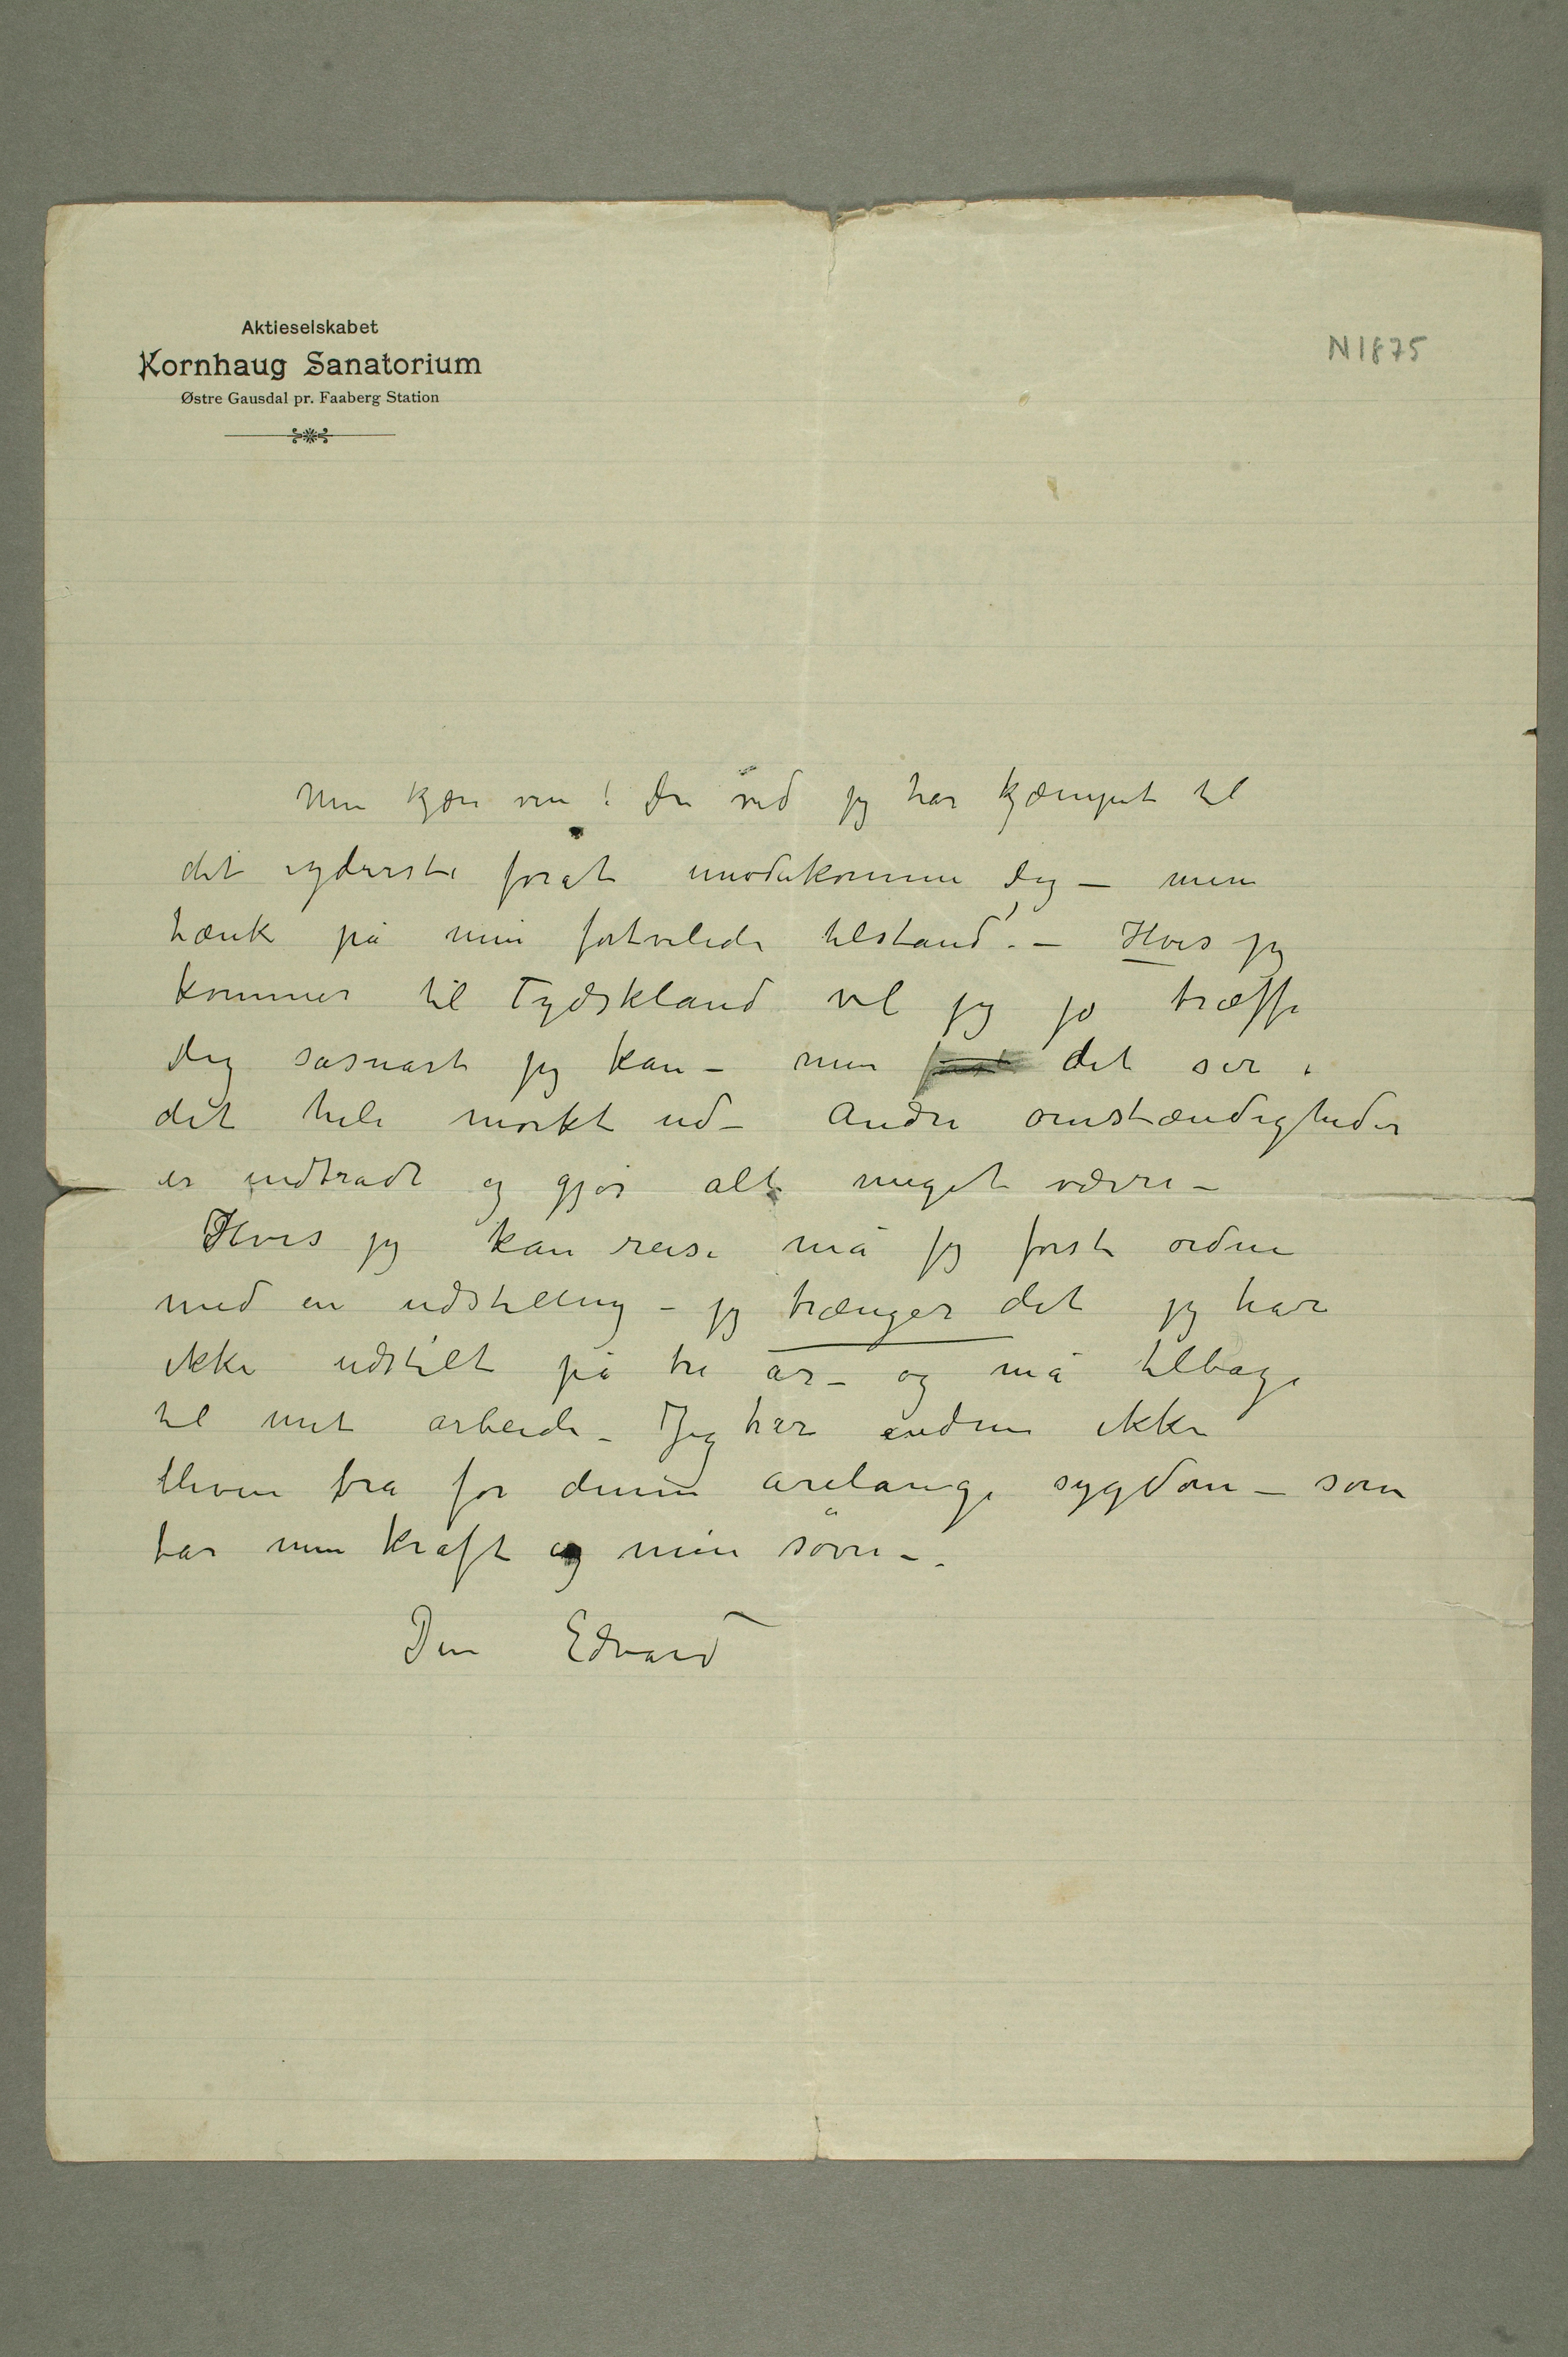 Aktieselskabet
Kornhaug Sanatorium
Østre Gausdal pr. Faaberg Station
N1875
Min kjære ven! Du ved jeg har kjæmpet til
det yderste forat imødekomme dig – men
tænk på min fortvilede tilstand. – Hvis jeg
kommer til Tydskland vil jeg jo træffe
dig såsnart jeg kan – men først det ser i
det hele mørkt ud – Andre omstændigheder
er indtrådt og gjør alt meget værre –
Hvis jeg kan reise må jeg først ordne
med en udstilling – jeg trænger det jeg har
ikke udstilt på tre år – og må tilbage
til mit arbeide – Jeg har endnu ikke
bleven bra for denne årelange sygdom – som
tar min kraft og min søvn –.
Din Edvard